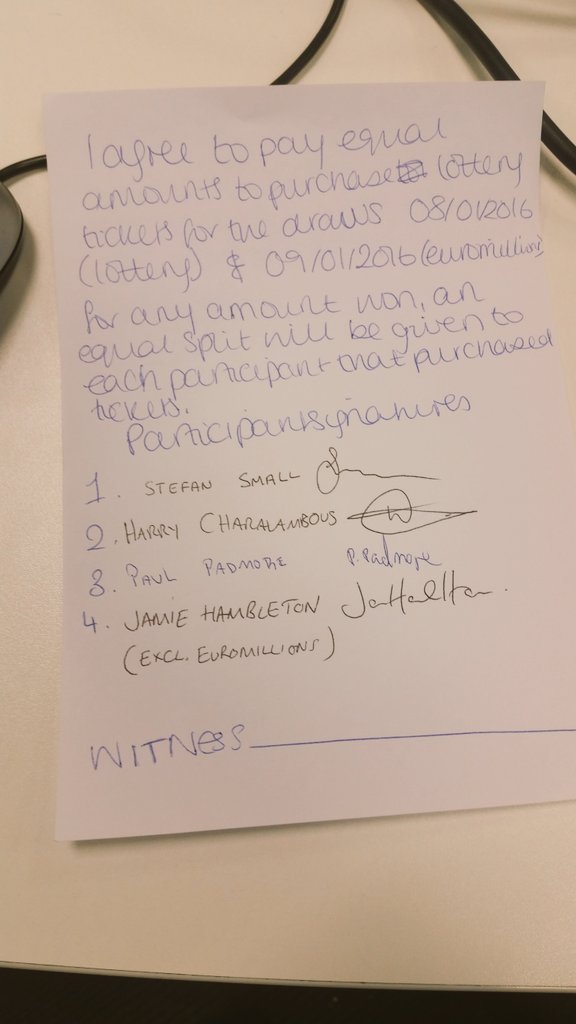 I agree to pay equal
amounts to purchase lottery
tickets for the draws 08/01/2016
(lottery) & 09/01/2016 (euromillions)
for any amount won, an
equal split will be given to
each participant that purchased
tickets.
Participant signatures
1. STEFAN SMALL
2. HARRY CHARALAMBOUS
3. PAUL PADMORE P. Padmore
4. JAMIE HAMBLETON
(EXCL. EUROMILLIONS)
WITNESS